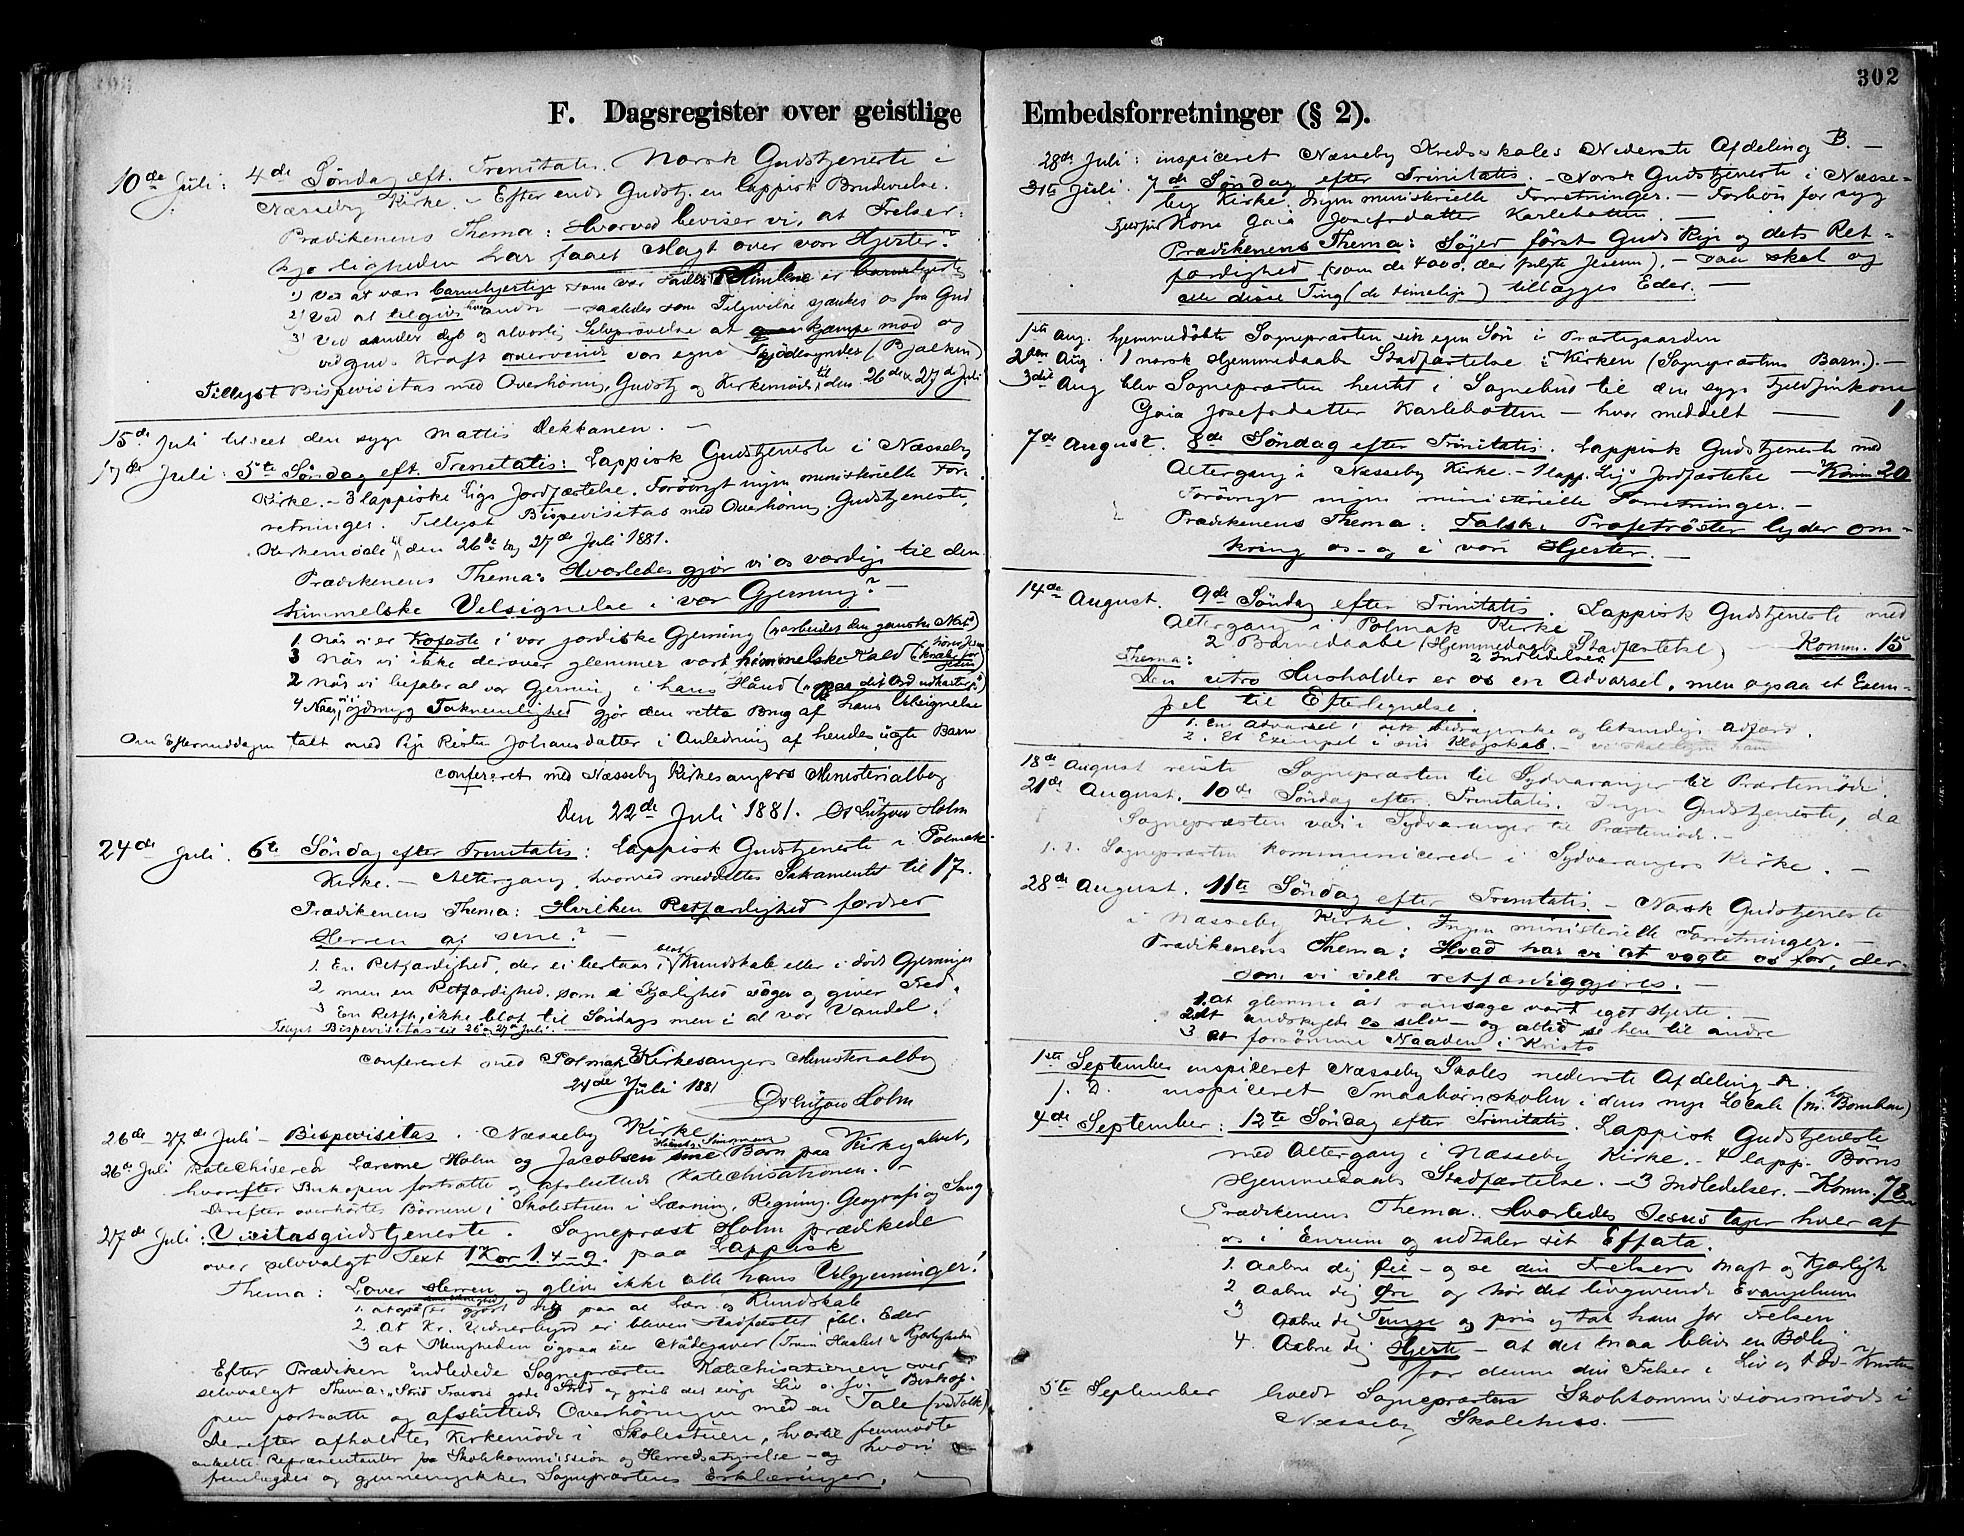 302
F. Dagsregister over geistlige Embedsforretninger (§ 2).
10de Juli: 4de Søndag eft. Trinitatis. Norsk Gudstjeneste i
Næsseby Kirke. – Efter endt Gudstj. en lappisk Brudevielse.
Prædikenens Thema: Hvorved beviser vi, at Frelser-
kjærligheden har faaet Magt over vore Hjerter?
1) Ved at være barmhjertige som vor Fader i Himlene er barmhjertig
2) Ved at tilgive hverandre – saaledes som Tilgivelse skjænkes os fra Gud
3) Ved under dyb og alvorlig Selvprøvelse at kjæmpe mod og
ved Guds Kraft overvinde vor egne Kjødssynder (Bjælken)
Tillyst Bispevisitas med Overhøring, Gudstj og Kirkemøde til den 26de & 27de Juli
15de Juli tilseet den syge Mattis Dekkanen. –
17de Juli: 5te Søndag eft. Trinitatis: Lappisk Gudstjeneste i Næsseby
Kirke. – 3 lappiske Ligs Jordfæstelse. Forøvrigt ingen ministerielle For-
retninger. Tillyst Bispevisitas med Overhøring, Gudstjeneste,
Kirkemøde til den 26de og 27de Juli 1881.
Prædikenens Thema: Hvorledes gjør vi os værdige til den
himmelske Velsignelse i vor Gjerning?
1 Når vi er trofaste i vor jordiske Gjerning (arbeidet den ganske Nat)
3 Når vi ikke derover glemmer vort himmelske Kald
2 Når vi befaler al vor Gjerning i hans Hånd (paa dit Ord udkaster)
4 Når ydmyg Taknemlighed gjør den rette Brug af hans Velsignelse
Om Eftermiddagen talt med Pige Risten Johansdatter i Anledning af hendes uægte Barn
confereret med Næsseby Kirkesangers Ministerialbog
Den 22de Juli 1881. O Lützow Holm
24de Juli. 6te Søndag efter Trinitatis: Lappisk Gudstjeneste i Polmak
Kirke. – Altergang, hvorved meddeltes Sakramentet til 17.
Prædikenens Thema: Hvilken Retfærdighed fordrer
Herren af sine? –
1. En Retfærdighed, der ei bestaar i blot Kundskab eller i døde Gjerninger
2 men en Retfærdighed, som i Kjærlighed søger og giver Fred.
3 En Retfh, ikke blot til Søndags men i al vor Vandel.
Tillyst Bispevisitas til 26 og 27de Juli.
confereret med Polmak Kirkesangers Ministerialbog
24de Juli 1881
O Lützow Holm
26de – 27de Juli – Bispevisitas. Næsseby Kirke
26de Juli katechiserede Lærerne Holm og Jacobsen Børn paa Kirkegulvet,
hvorefter Biskopen fortsatte og afsluttede Katechisationen. –
Derefter overhørtes Børnene i Skolestuen i Læsning, Regning, Geografi og Sang
27de Juli: Visitasgudstjeneste. Sogneprest Holm prædikede
over selvvalgt Text 1 Kor 1. 4–9. paa Lappisk
Thema: Lover Herren og glem ikke alle hans Velgjerninger!
1. at gjort rig paa al Lære og Kundskab
2. At Kr. Vidnesbyrd er bleven stadfæstet bl. Eder
3 at Menigheden ogsaa eier Nådegaver (Troen Haabet & Kjærligheden)
Efter Prædiken indledede Sognepræsten Katechisationen over
selvvalgt Thema: "Strid Troens gode Strid og grib det evige Liv o.s.v." Bisko-
pen fortsatte og afsluttede Overhøringen med en Tale (ved Tolk)
Derefter afholdtes Kirkemøde i Skolestuen, hvortil fremmødte
enkelte Repræsentanter fra Skolekommission og Herredsstyrelse – og hvori
fremlagdes og gjennemgikkes Sognepræstens Erklæringer.
28de Juli: inspiceret Næsseby Kredsskoles Nederste Afdeling B. –
31te Juli. 7de Søndag efter Trinitatis. – Norsk Gudstjeneste i Næsse-
by Kirke. Ingen ministerielle Forretninger. – Forbøn for syg
Kone Gaia Josefsdatter Karlebotten. –
Prædikenens Thema: Søger først Guds Rige og dets Ret-
færdighed (som de 4000, der fulgte Jesum), – saa skal og
alle disse Ting (de timelige) tillægges Eder. –
1ste Aug. hjemmedøbte Sognepræsten sin egen Søn i Præstegaarden
2den Aug. 1 norsk Hjemmedaabs Stadfæstelse i Kirken (Sognepræstens Barn). –
3die Aug blev Sognepræsten hentet i Sognebud til den syge Fjeldfinkone
Gaia Josefsdatter Karlebotten – hvor meddelt – 1
7de August. 8de Søndag efter Trinitatis. Lappisk Gudstjeneste med
Altergang i Næsseby Kirke. – 1 lapp. Ligs Jordfæstelse – Kom. 20
Forøvrigt ingen ministerielle Forretninger. –
Prædikenens Thema: Falske Profetrøster lyder om-
kring os – og i vore Hjerter. –
14de August. 9de Søndag efter Trinitatis. Lappisk Gudstjeneste med
Altergang i Polmak Kirke
2 Barnedaabe (Hjemmedaabs Stadfæstelse) Komm. 15
2 Indledelser
Thema:
Den utro Husholder er os en Advarsel, men ogsaa et Exem-
pel til Efterlignelse.
1. En Advarsel i sit bedragerske og letsindige Adfærd.
2. Et Exempel i sin Klogskab. – vi skal ligne ham
18de August reiste Sognepræsten til Sydvaranger til Præstemøde.
21de August. 10de Søndag efter Trinitatis. Ingen Gudstjeneste, da
Sognepræsten var i Sydvaranger til Præstemøde. –
Sognepræsten kommunicerede i Sydvarangers Kirke. –
28de August. 11te Søndag efter Trinitatis. – Norsk Gudstjeneste
i Næsseby Kirke. Ingen ministerielle Forretninger. –
Prædikenens Thema: Hvad har vi at vogte os for, der-
som vi ville retfærdiggjøres. –
1. at glemme at ransage vort eget Hjerte. –
2 at undskylde os selv – og altid se hen til andre
3 at forsømme Naaden i Kristo
1ste September inspiceret Næsseby Skoles nederste Afdeling A.
1. D. inspiceret Smaabørnskolen i dens nye Locale
4de September: 12te Søndag efter Trinitatis. Lappisk Gudstjeneste
med Altergang i Næsseby Kirke. – 4 lapp. Børns
Hjemmedaabs Stadfæstelse. – 3 Indledelser. – Komm. 78
Prædikenens Thema. Hvorledes Jesus tager hver af
os i Enrum og udtaler sit Effata.
1. Aabne dig Øie – og se din Frelsers Magt og Kjærligh
2 Aabne dig Øre og hør det livgivende Evangelium
3 Aabne dig Tunge og pris og tak ham for Frelsen
4. Aabne dig Hjerte – at det maa blive en Bolig
for denne din Frelser i Liv og Død – Kristen
5te September holdt Sognepræsten Skolekommissionsmøde i
Næsseby Skolehus. –